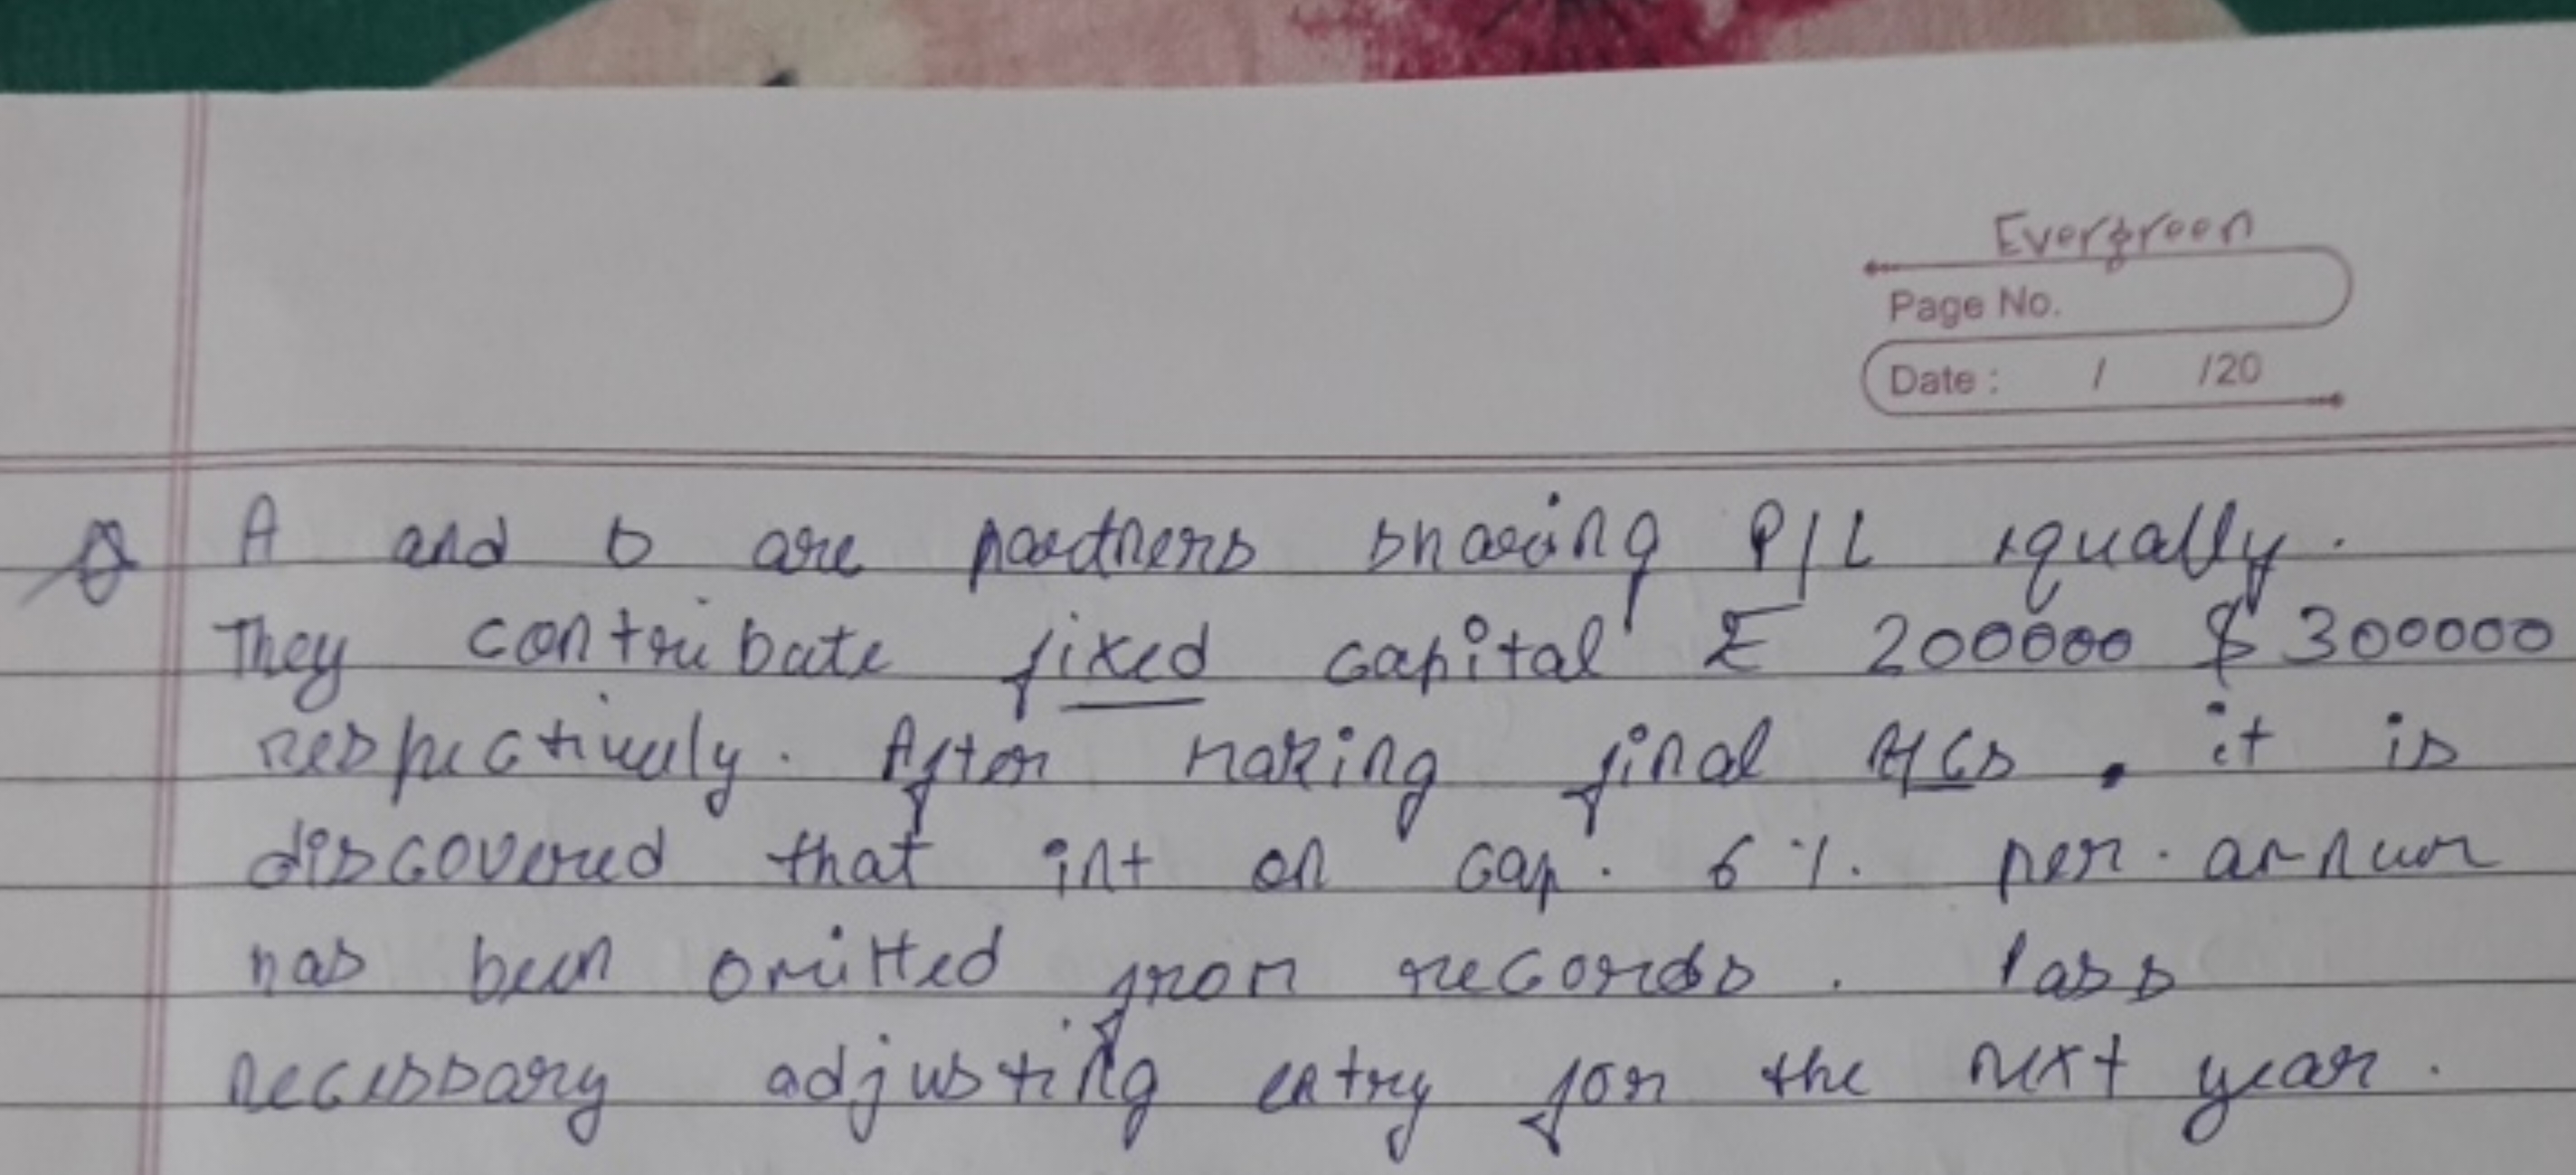 Evergreen
Page No.
Date : / /20
Q A and B are partners sharing P/L equally.
They contribute fixed capital ₹ 200000 & 300000
respectively. After making final A/Cs, it is
discovered that int on cap. 6%. per. annum
has been omitted from records. Pass
necessary adjusting entry for the next year.